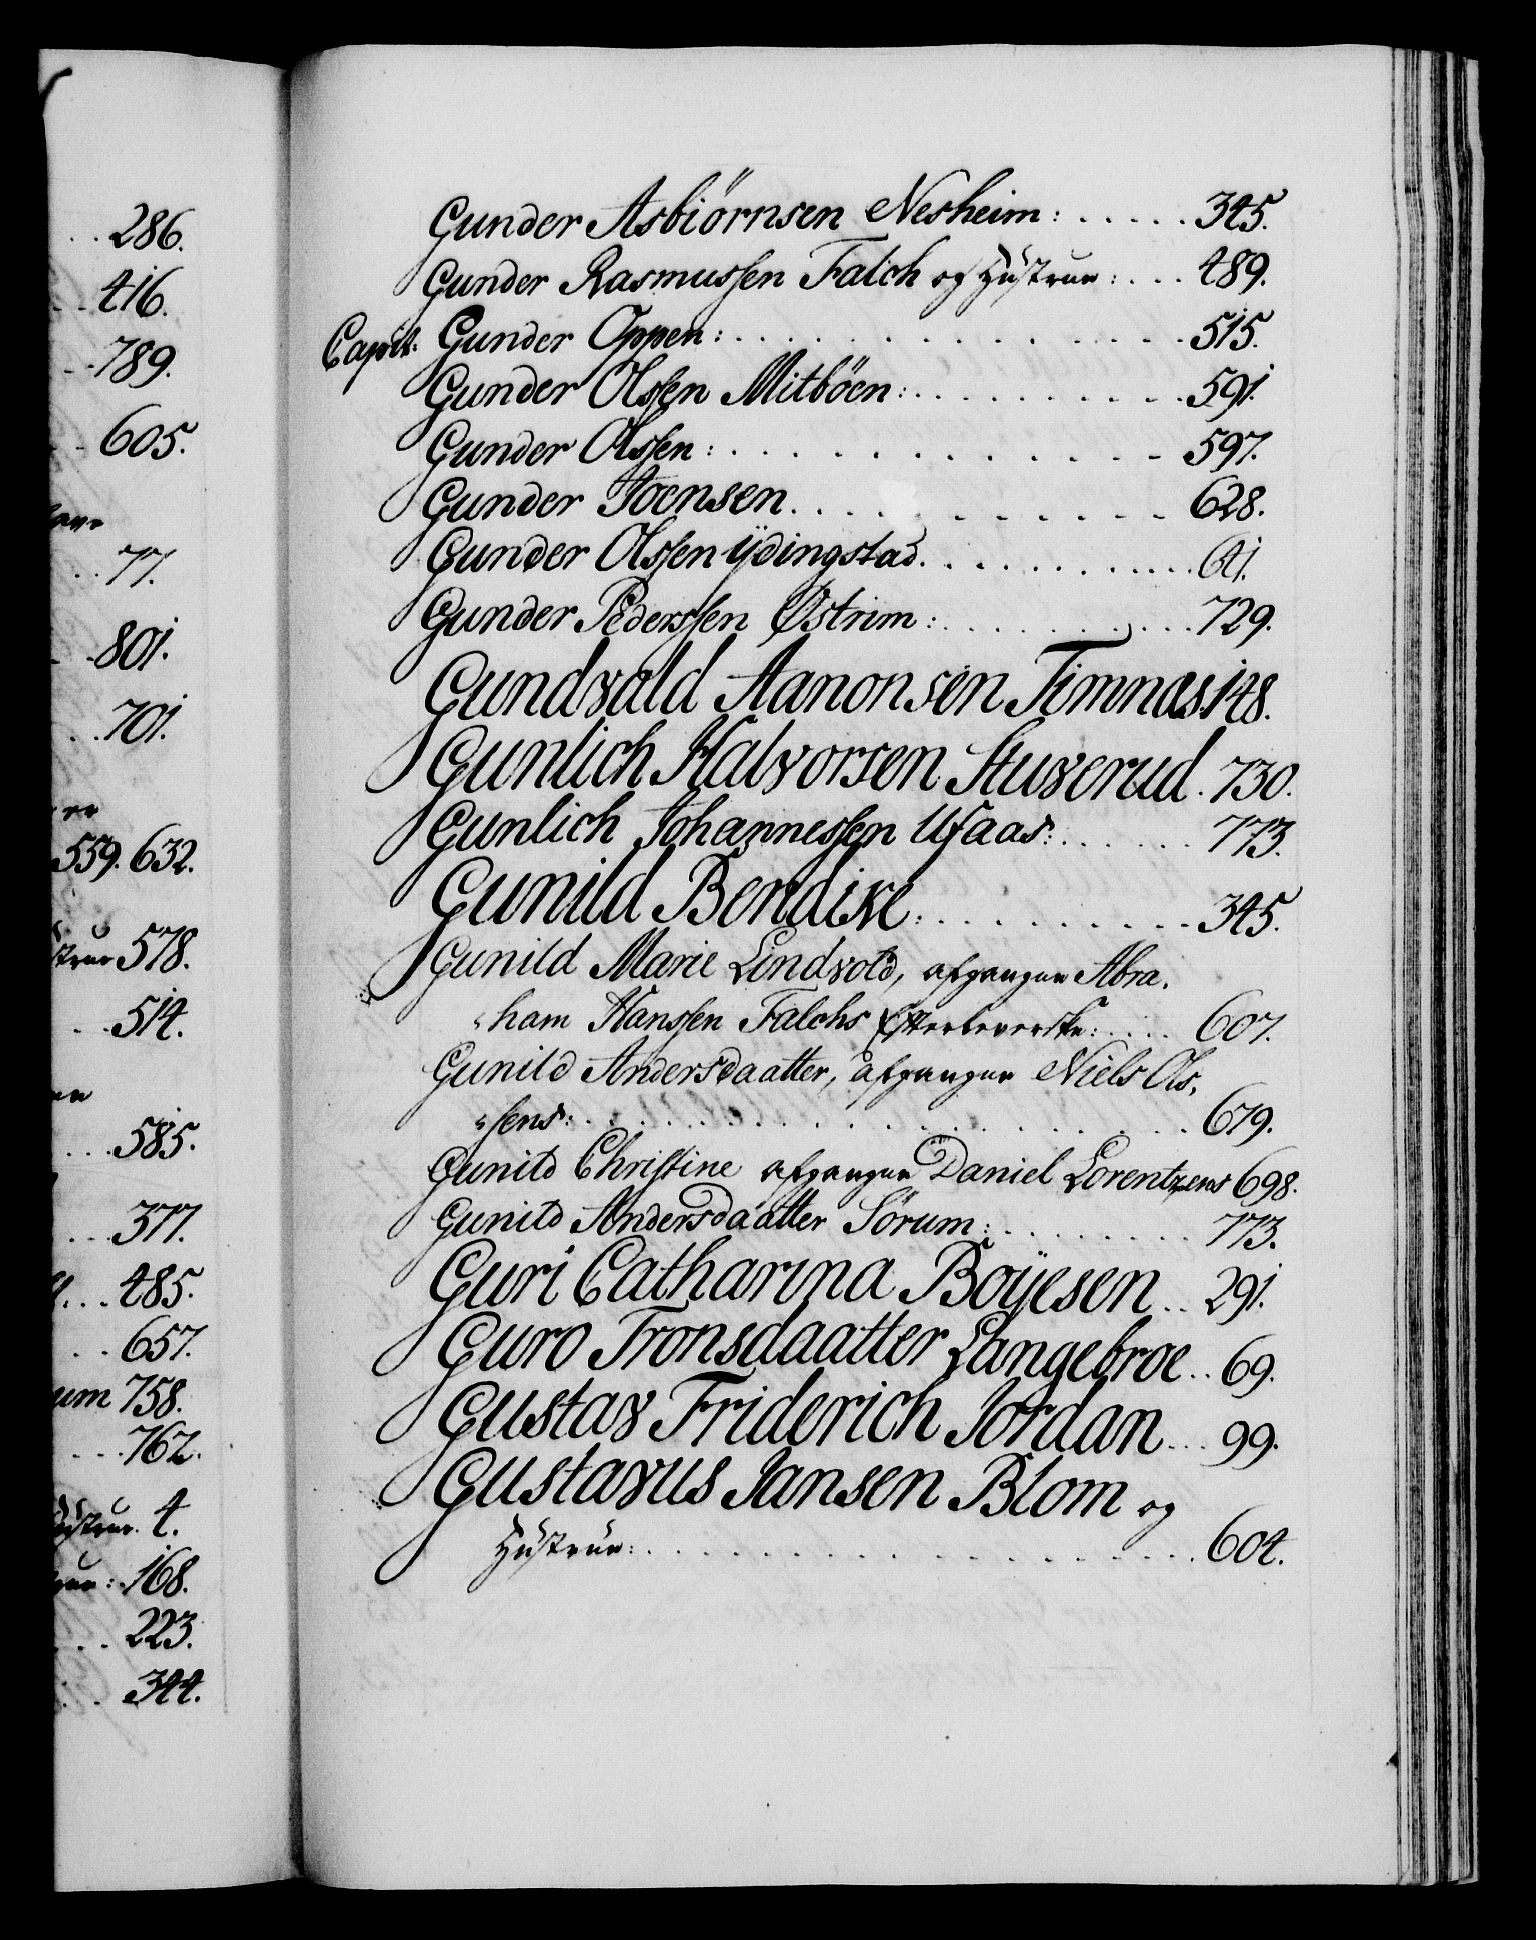 286.
416.
789.
605.
77.
801.
701.
559. 632.
578.
514.
585.
377.
485.
657.
um 758.
762.
Hustrue. 4.
168.
223.
344.
Gunder Asbiörnsen Nesheim: . . . . . 345.
Gunder Rasmussen Falch og Hustrue: . . . 489.
Capit: Gunder Oppen: . . . . . . . . . . . . . . 515.
Gunder Olssen Mitböen: . . . . . . . . . . 591.
Gunder Olssen: . . . . . . . . . . . . . 597.
Gunder Joensen . . . . . . . . . . . . 628.
Gunder Olssen Ydingstad . . . . . . . . . . 641.
Gunder Pederssen Østrim: . . . . . . . . . 729.
Gundvald Aanonsen Timnæs. 148.
Gunlich Halvorsen Stuverud. 730.
Gunlich Johannessen Ufaas: . . . . . . 773.
Gunild Bendixe: . . . . . . . . . 345.
Gunild Marie Lindvold, afgangne Abra,
"ham Hanssen Falchs Efterleverske: . . . . 607.
Gunild Andersdaatter, afgangne Niels Ols,
"sens: . . . . . . . . . . . . . . . . . . 679.
Gunild Christine afgangne Daniel Lorentzens 698.
Gunild Andersdaatter Sörum: . . . . . . . . 773.
Guri Catharina Boÿesen . . 291.
Guro Tronsdaatter Langebroe . . 69.
Gustav Friderich Jordan . . . 99.
Gustavus Jansen Blom og
Hustrue: . . . . . . . . . . . . . . . . . . 604.